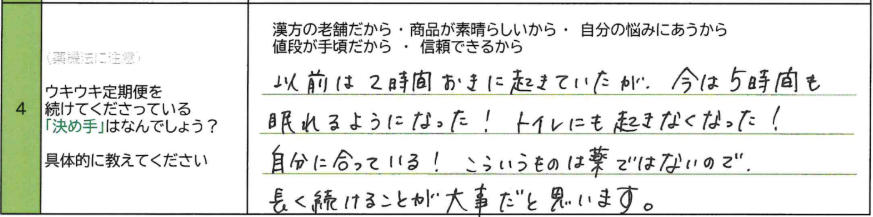 漢方の老舗だから・商品が素晴らしいから・ 自分の悩みにあうから
値段が手頃だから ・ 信頼できるから
(薬機法に注意)
4
ウキウキ定期便を
続けてくださっている
「決め手」はなんでしょう？
具体的に教えてください
以前は2時間おきに起きていたが、今は5時間も
眠れるようになった！ トイレにも起きなくなった！
自分に合っている！ こういうものは薬ではないので、
長く続けることが大事だと思います。